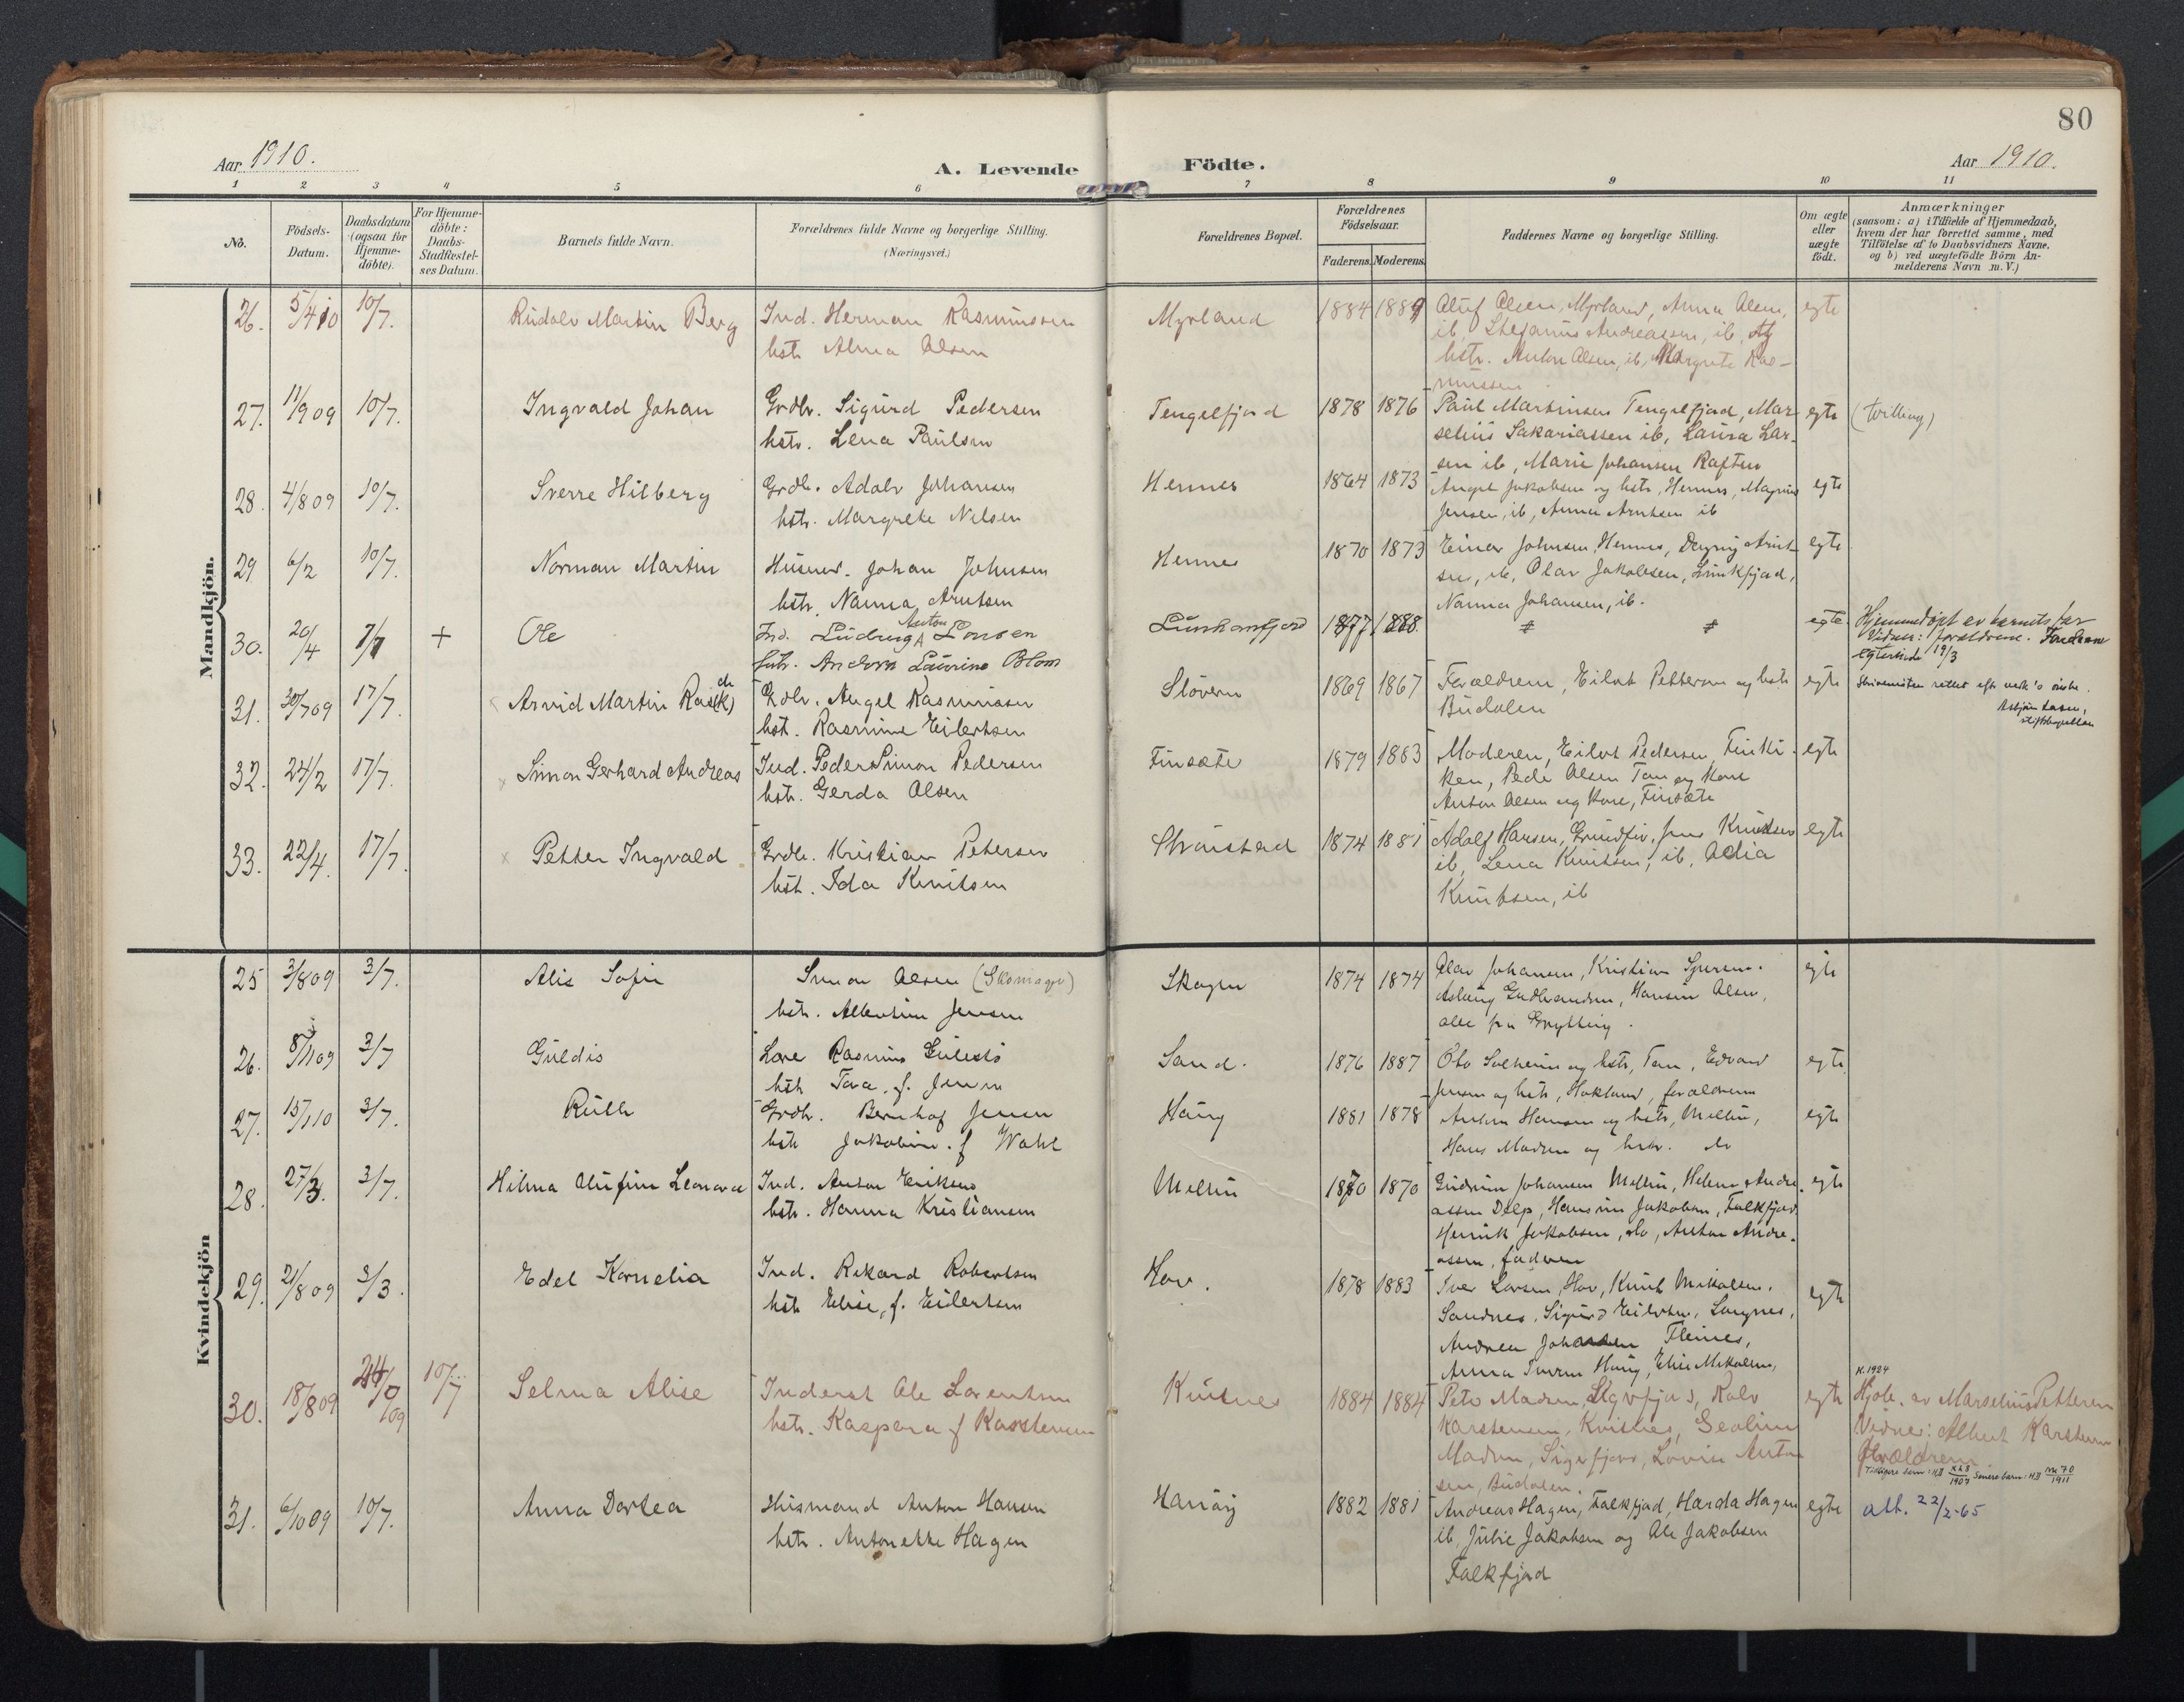 80
Aar 1910.
A. Levende Födte.
Aar 1910.
1 2 3 4 5 6 7 8 9 10 11
No.
Födsels-
Datum.
Daabsdatum
(ogsaa for
Hjemme-
döbte).
For Hjemme-
döbte:
Daabs-
Stadfæstel-
ses Datum.
Barnets fulde Navn.
Forældrenes fulde Navne og borgerlige Stilling.
(Næringsvei.)
Forældrenes Bopæl.
Forældrenes
Födselsaar.
Faderens. Moderens.
Faddernes Navne og borgerlige Stilling.
Om ægte
eller
uægte
födt.
Anmærkninger
(saasom: a) i Tilfælde af Hjemmedaab,
hvem der har forrettet samme, med
Tilföielse af to Daabsvidners Navne,
og b) ved uægtefödte Börn An-
melderens Navn m. V.)
Mandkjön.
26. 5/4 10 10/7. Rudolv Martin Berg
Ind. Herman Rasmussen
hstr. Alma Olsen
Myrland 1884 1889
Oluf Olsen, Myrland, Anna Olsen,
ib, Stefanus Andreassen, ib,
hstr. Anton Olsen, ib, Margrete Ras-
mussen
egte
27. 11/9 09 10/7. Ingvald Johan
Grdbr. Sigurd Pedersen
hstr. Lena Paulsen
Tengelfjord 1878 1876
Paul Martinsen Tengelfjord, Mar-
selius Sakariassen ib, Laura Lar-
sen ib, Marie Johansen Raften
egte (tvilling)
28. 4/8 09 10/7. Sverre Hilberg
Grdb. Adolv Johansen
hstr. Margrete Nilsen
Hennes 1864 1873
Angel Jakobsen og hstr, Hennes, Magnus
Jensen, ib, Anna Arntsen ib
egte
29 6/2 10/7. Norman Martin
Husmd. Johan Johnsen
hstr. Nanna Arntsen
Hennes 1870 1873
Einar Johnsen, Hennes, Dagny Arnt-
sen, ib, Olav Jakobsen,
Nanna Johansen, ib.
egte
30. 20/4 7/7 + Ole
Ind. Ludvig Anton Larsen
hstr. Andora Laurine Blom
Lunkanfjord 1877 1888.
egte
Hjemmedöpt av barnets far
Vidner: foreldrene.
19/3
31. 30/7 09 17/7. Arvid Martin Rask
Grdbr. Angel Rasmussen
hst. Rasmine Eilertsen
Slöveren 1869 1867
Foreldrene, Eilert Pettersen og hstr
Budalen
egte
32. 24/2 17/7. Simon Gerhard Andreas
Ind. Peder Simon Pedersen
hstr. Gerda Olsen
Finsæte 1879 1883
Moderen, Eilert Pedersen, Finki-
ken, Peder Olsen Tan og Kone
Anton Olsen og Kone, Finsæte
egte
33. 22/4. 17/7. Petter Ingvald
Grdb. Kristian Petersen
hst. Ida Knutsen
Straustad 1874 1881
Adolf Hansen, Grundfør, Jens Knutsen
ib, Lena Knutsen, ib, Odia
Knutsen, ib
egte
Kvindekjön
25 3/8 09 3/7. Alis Sofie
Simon Olsen (Skomager)
hstr. Albertine Jensen
Skagen 1874 1874
Olav Johansen, Kristian
Aslaug Gudbrandsen, Hansine Olsen,
alle fra Grytting.
egte
26. 8/11 09 3/7 Guldis
Lærer Rasmus Gulestö
hstr Tora f. Jensen
Sand. 1876 1887
Otto Solheim og hstr, Tan, Edvard
Jensen og hstr, Hokland, forældrene
egte.
27. 15/1 10 3/7. Ruth
Grdbr. Bernhof Jensen
hstr Jakobine f Wahl
Haug 1881 1878
Anton Hansen og hstr, Melbu,
Hans Madsen og hstr. do
egte
28. 27/3. 3/7. Hilma Olufine Leonora
Ind. Anton Eriksen
hstr. Hanna Kristiansen
Melbu 1870 1870
Gudrun Johansen Melbu, Helene Andre-
assen Delp, Hansine Jakobsen, Falkfjord
Henrik Jakobsen, do, Anton Andre-
assen, faderen
egte
29. 21/8 09 3/3. Edel Kornelia
Ind. Rikard Robertsen
hstr Elise, f. Eilertsen
Hov. 1878 1883
Iver Larsen, Hov, Knut Mikalsen,
Sandnes, Sigurd Eilertsen, Langnes,
Andrea Johansen Fleines,
Anna Iversen Haug, Elise Mikalsen,
egte
30. 18/8 09 24/0 /09 10/7 Selma Alise
Inderst Ole Lorentsen
hstr. Kaspara f Karstensen
Kvitnes 1884 1884
Peter Madsen, Sigerfjord, Rolv
Karstensen, Kvitnes, Sealine
Madsen, Sigerfjord, Lovise Anton-
sen, Budalen.
egte
K. 1924
Hjdb. av Marselius Pettersen
Vidner: Albert Karstensen
Forældrene.
31. 6/10 09 10/7. Anna Dortea
Husmand Anton Hansen
hstr. Antonette Hagen
Hanöy 1882 1881
Andreas Hagen, Falkfjord, Harda Hagen
ib, Julie Jakobsen og Ole Jakobsen
Falkfjord
egte att. 22/2-65